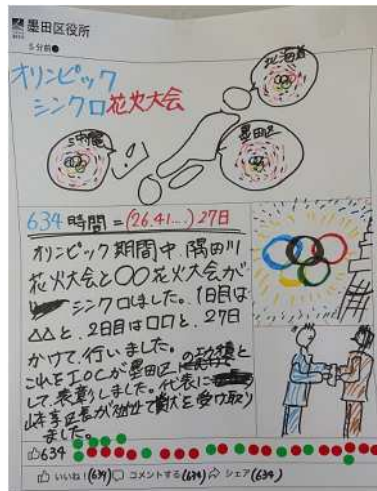 墨田区役所
5分前
オリンピック
シンクロ花火大会
北海道
沖縄
墨田区
634時間=(26.41...)27日
オリンピック期間中、隅田川
花火大会と〇〇花火大会が
シンクロしました。1日目は
△△と、2日目は口口と、27日
かけて、行いました。
これをIOCが墨田区の功績と
して、表彰しました。代表に
山本亨区長が
を受け取り
ました。
634
いいね!(634) コメントする(634) シェア(634)